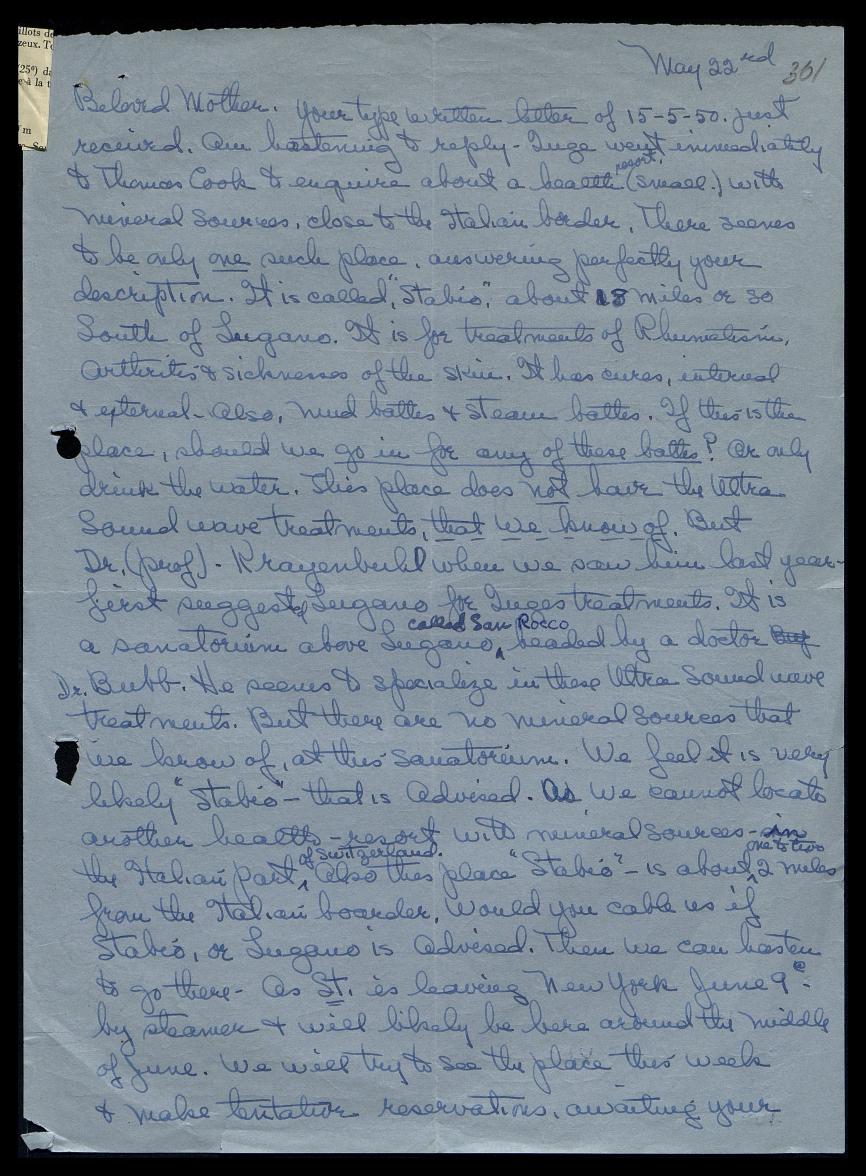 illots de
zeux. To
(25°) da
e à la t
m
May 22nd 361
Beloved Mother. Your type written letter of 15-5-50. just
received. Am hastening to reply - Inge went immediately
to Thomas Cook to enquire about a health resort. (small.) with
mineral sources, close to the Italian border. There seems
to be only one such place, answering perfectly your
description. It is called, "Stabio," about 18 miles or so
South of Lugano. It is for treatments of Rheumatism,
Arthritis & sicknesses of the skin. It has cures, internal
& external - Also, mud baths & steam baths. If this is the
place, should we go in for any of these baths? Or only
drink the water. This place does not have the Ultra
Sound wave treatments, that we know of. But
Dr. (prof). Krayenbuhl when we saw him last year -
first suggested Lugano for Inges treatments. It is
a sanatorium above Lugano, called San Rocco headed by a doctor
Dr. Bubb. He seems to specialize in these Ultra Sound wave
treatments. But there are no mineral sources that
we know of, at this sanatorium. We feel it is very
likely "Stabio" - that is advised. As we cannot locate
another health - resort with mineral sources - in
the Italian part of Switzerland. Also this place "Stabio" - is about one to two 2 miles
from the Italian boarder. Would you cable us if
Stabio, or Lugano is advised. Then we can hasten
to go there - As St. is leaving New York June 9e.
by steamer & will likely be here around the middle
of June. We will try to see the place this week
& make tentative reservations, awaiting your